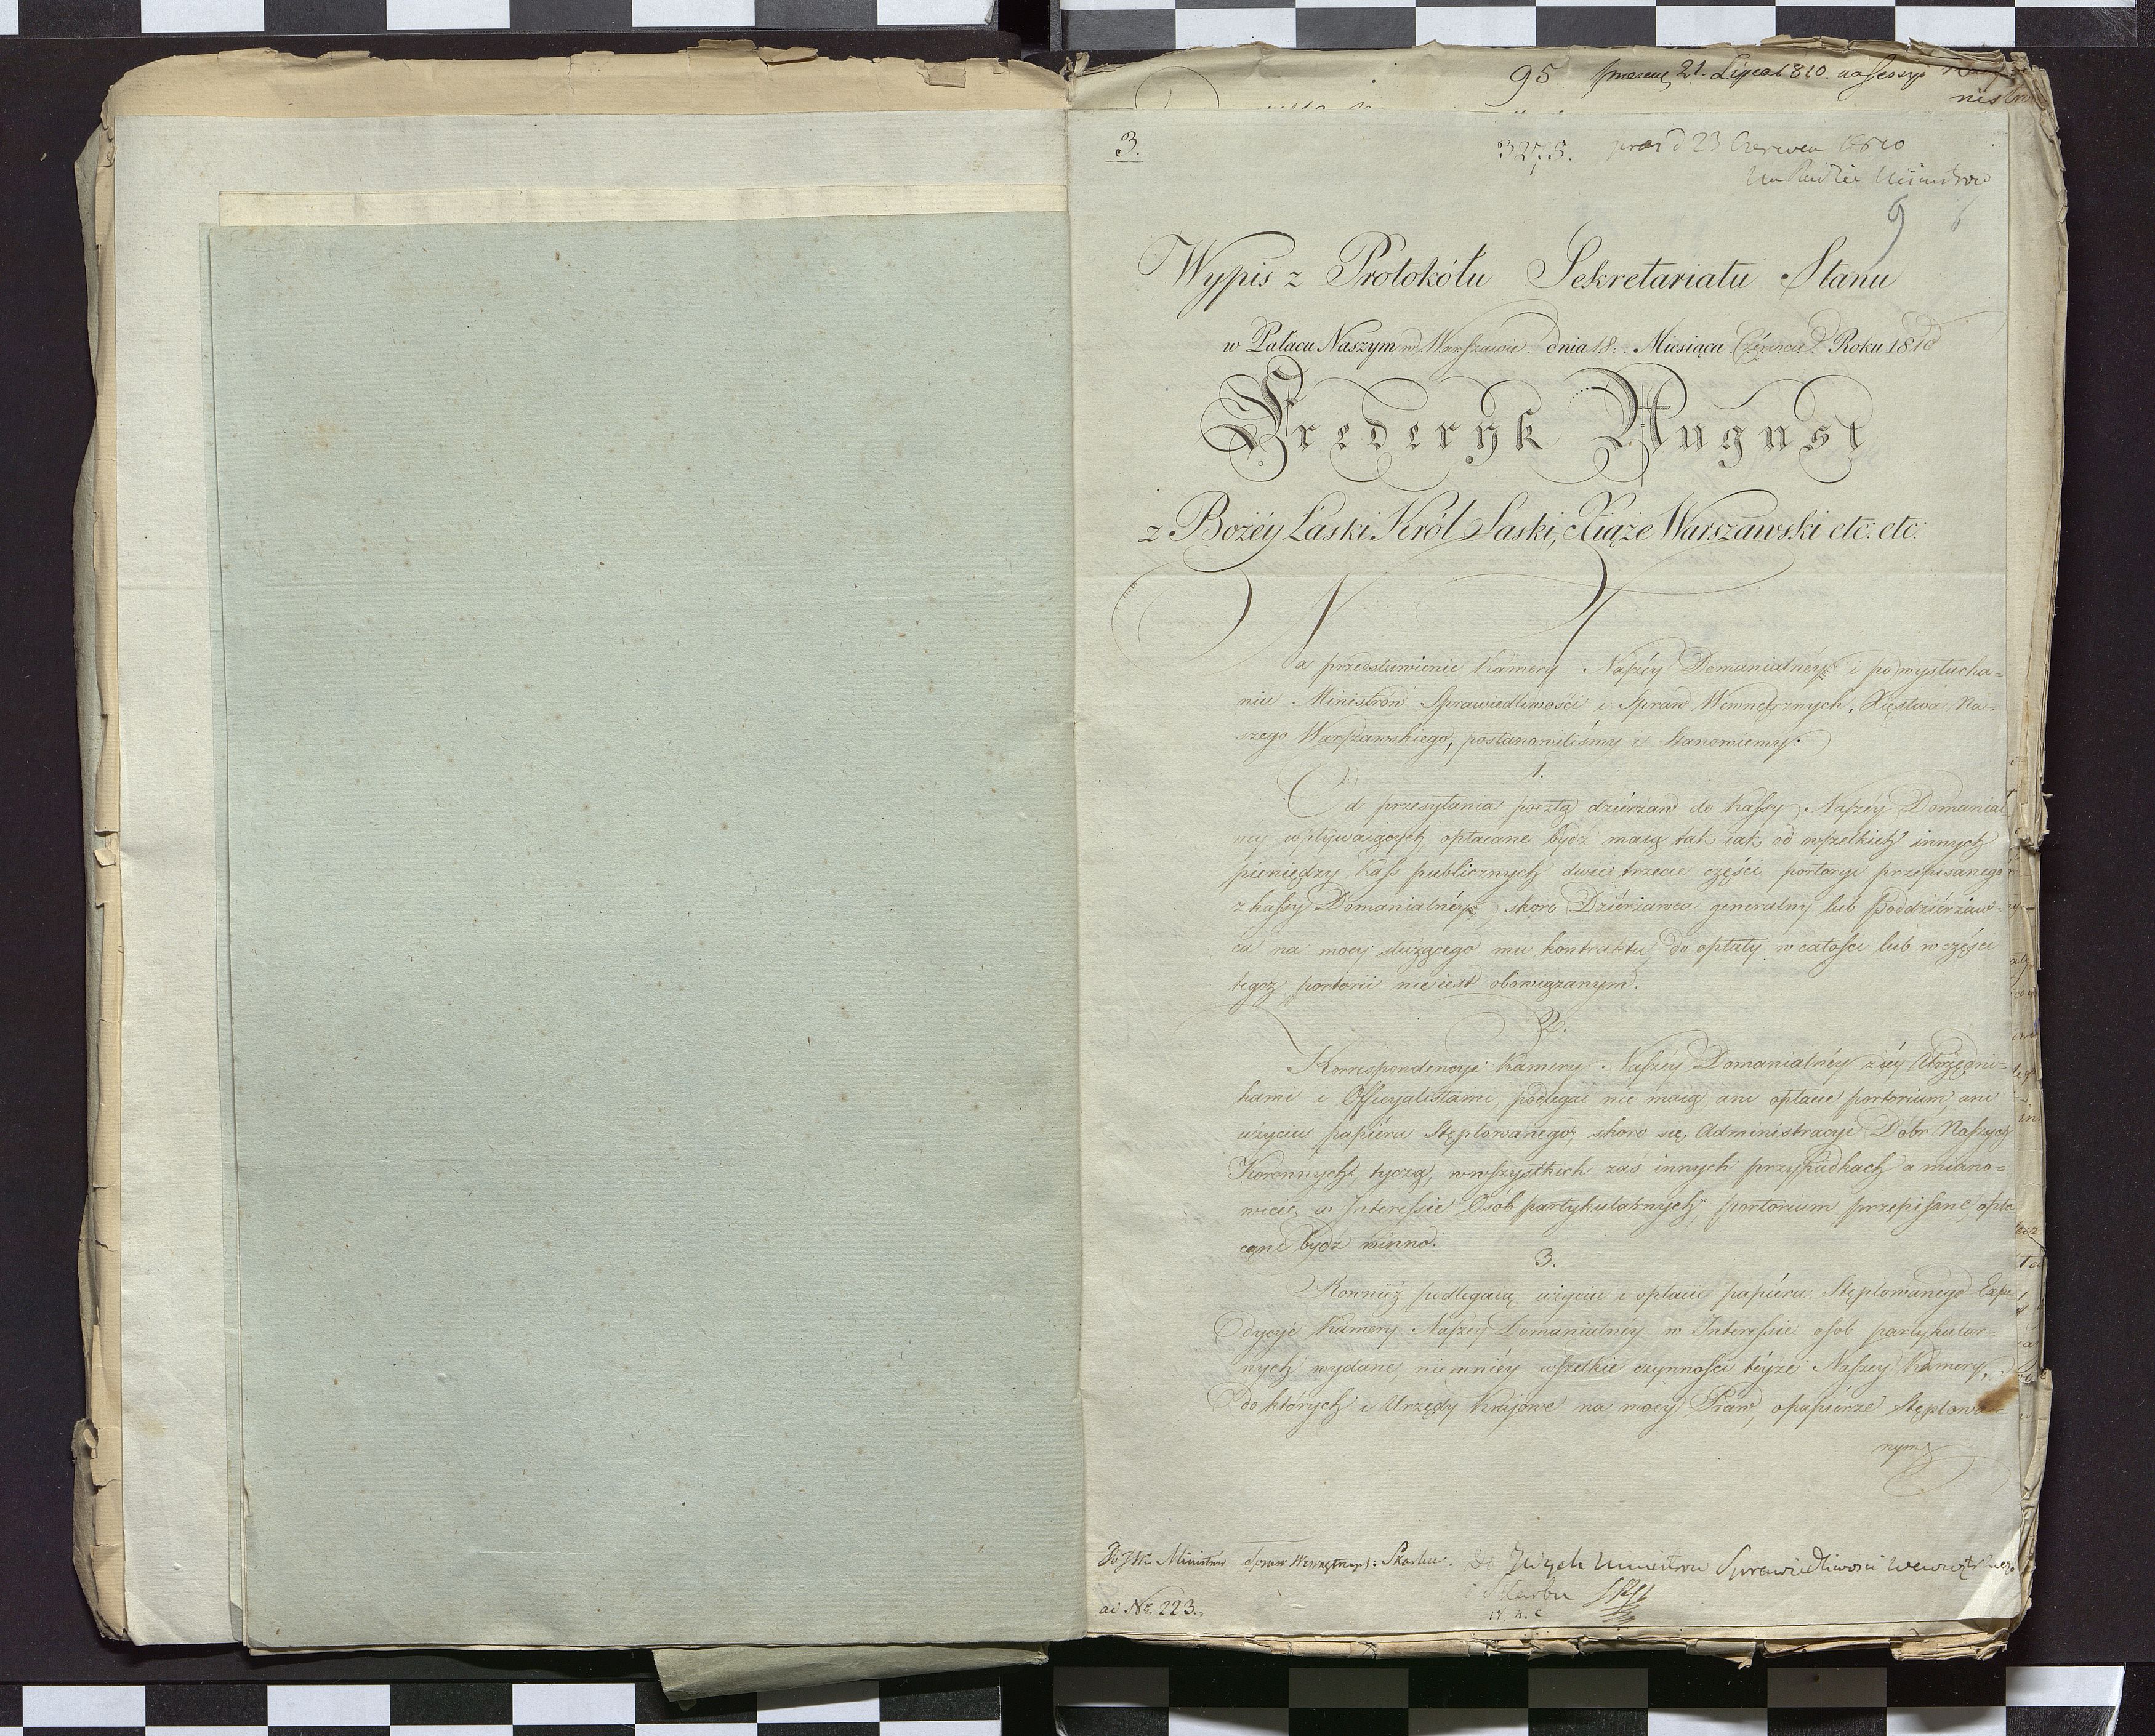 95. 21. Lipca 1810. na sessyi
3.
3275. praes d 23 Czerwca 1810
na Radzie Ministrow
9 6
Wypis z Protokółu Sekretariatu Stanu
w Pałacu Naszym w Warszawie dnia 18. Miesiąca Czerwca Roku 1810
Frederyk August
z Bożéy Łaski Król Saski, Xiąże Warszawski etc: etc:
Na przedstawienie Kamery Naszéy Domanialnéy i po wysłucha=
niu Ministrów Sprawiedliwości i Spraw Wewnętrznych, Xięstwa Na=
szego Warszawskiego, postanowiliśmy i Stanowiemy:
1.
Od przesyłania pocztą dzierżaw do kassy Naszéy Domanial
néy wpływaiących, opłacane bydź maią tak iak od wszelkich innych
pieniędzy Kass publicznych dwie trzecie części portoryi przepisanego
z kassy Domanialnéy, skoro Dzierżawca generalny lub Poddzierżaw=
ca na mocy służącego mu kontraktu, do opłaty w całości lub w części
tegoż portorii nie iest obowiązanym.
2.
Korrespondencye Kamery Naszéy Domanialnéy z iéy Urzędni=
kami i Officyalistami, podlegać nie maią ani opłacie portorium, ani
użyciu papiéru Stęplowanego, skoro się, Administracyi Dóbr Naszych
Koronnych, tyczą, w wszystkich zaś innych przypadkach a miano=
wicie w Interessie Osób partykularnych, portorium przepisane, opła
cane bydź winno.
3.
Rownież podlegaią użyciu i opłacie papiéru Stęplowanego Expe
dycye Kamery Naszéy Domanialnéy w Interessie osob partykular=
nych wydane, niemniéy wszelkie czynności téyże Naszey Kamery,
do których i Urzędy Krajowe na mocy Praw, o papiérze Stęplowa=
nym
Do JW. Ministrów Spraw Wewnętrznych: Skarbu. Do JWych Ministrow Sprawiedliwosci Wewnętrznego
i Skarbu
ai No. 223.